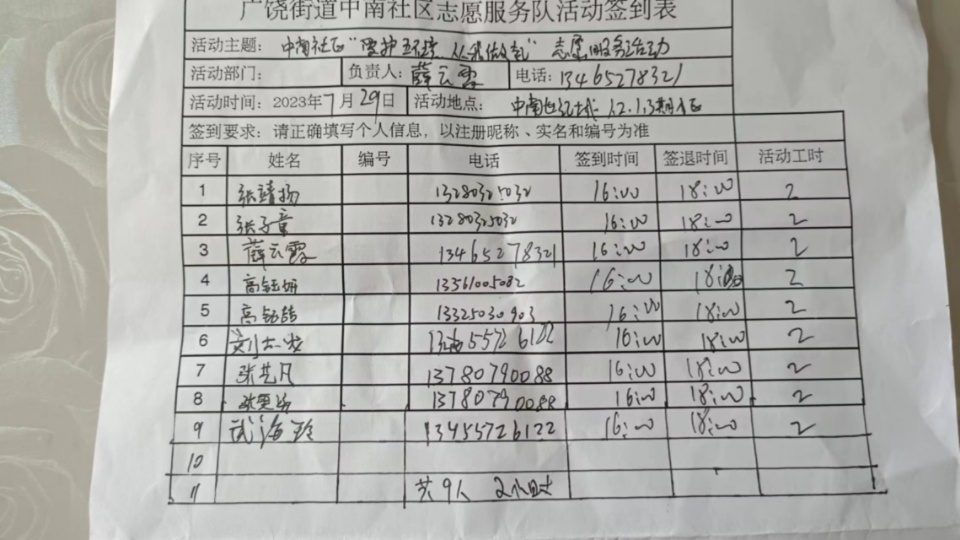 广饶街道中南社区志愿服务队活动签到表
活动主题： 中南社区“爱护环境 从我做起”志愿服务活动
活动部门： 负责人：薛云霞 电话：13465278321
活动时间：2023年7月29日 活动地点： 中南世纪城 1.2.1.3期社区
签到要求：请正确填写个人信息，以注册昵称、实名和编号为准
序号 姓名 编号 电话 签到时间 签退时间 活动工时
1 张靖扬 13280325032 16:00 18:00 2
2 张子童 13280325032 16:00 18:00 2
3 薛云霞 13465278321 16:00 18:00 2
4 高钰妍 13561005082 16:00 18:00 2
5 高钰喆 13325030903 16:00 18:00 2
6 16:00 18:00 2
7 张艺凡 13780790088 16:00 18:00 2
8 13780790088 16:00 18:00 2
9 武海玲 13455726122 16:00 18:00 2
10
11 共9人 2小时